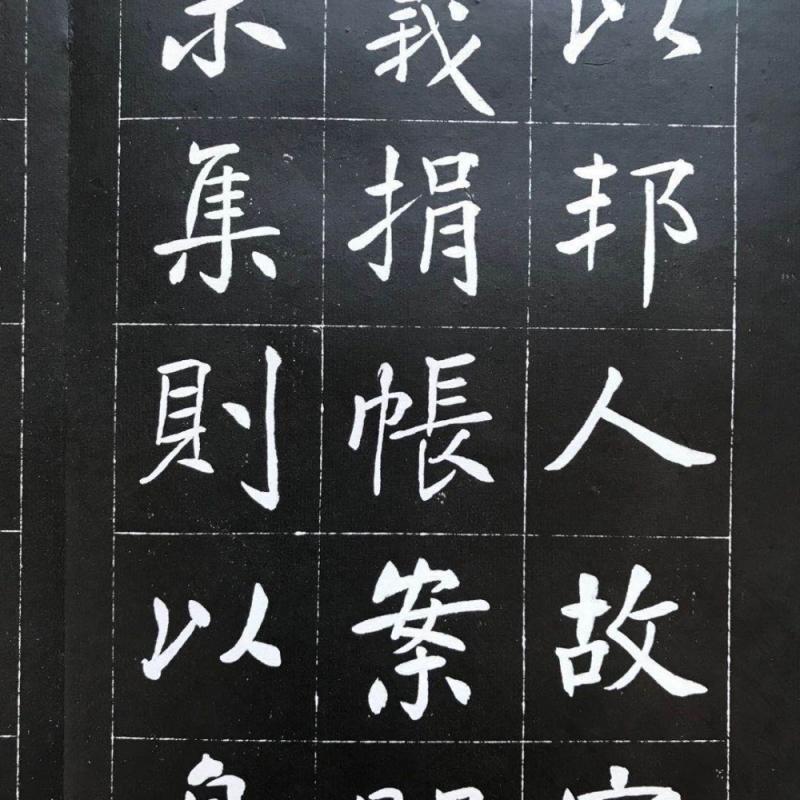 以邦人故
義捐帳案
集則以